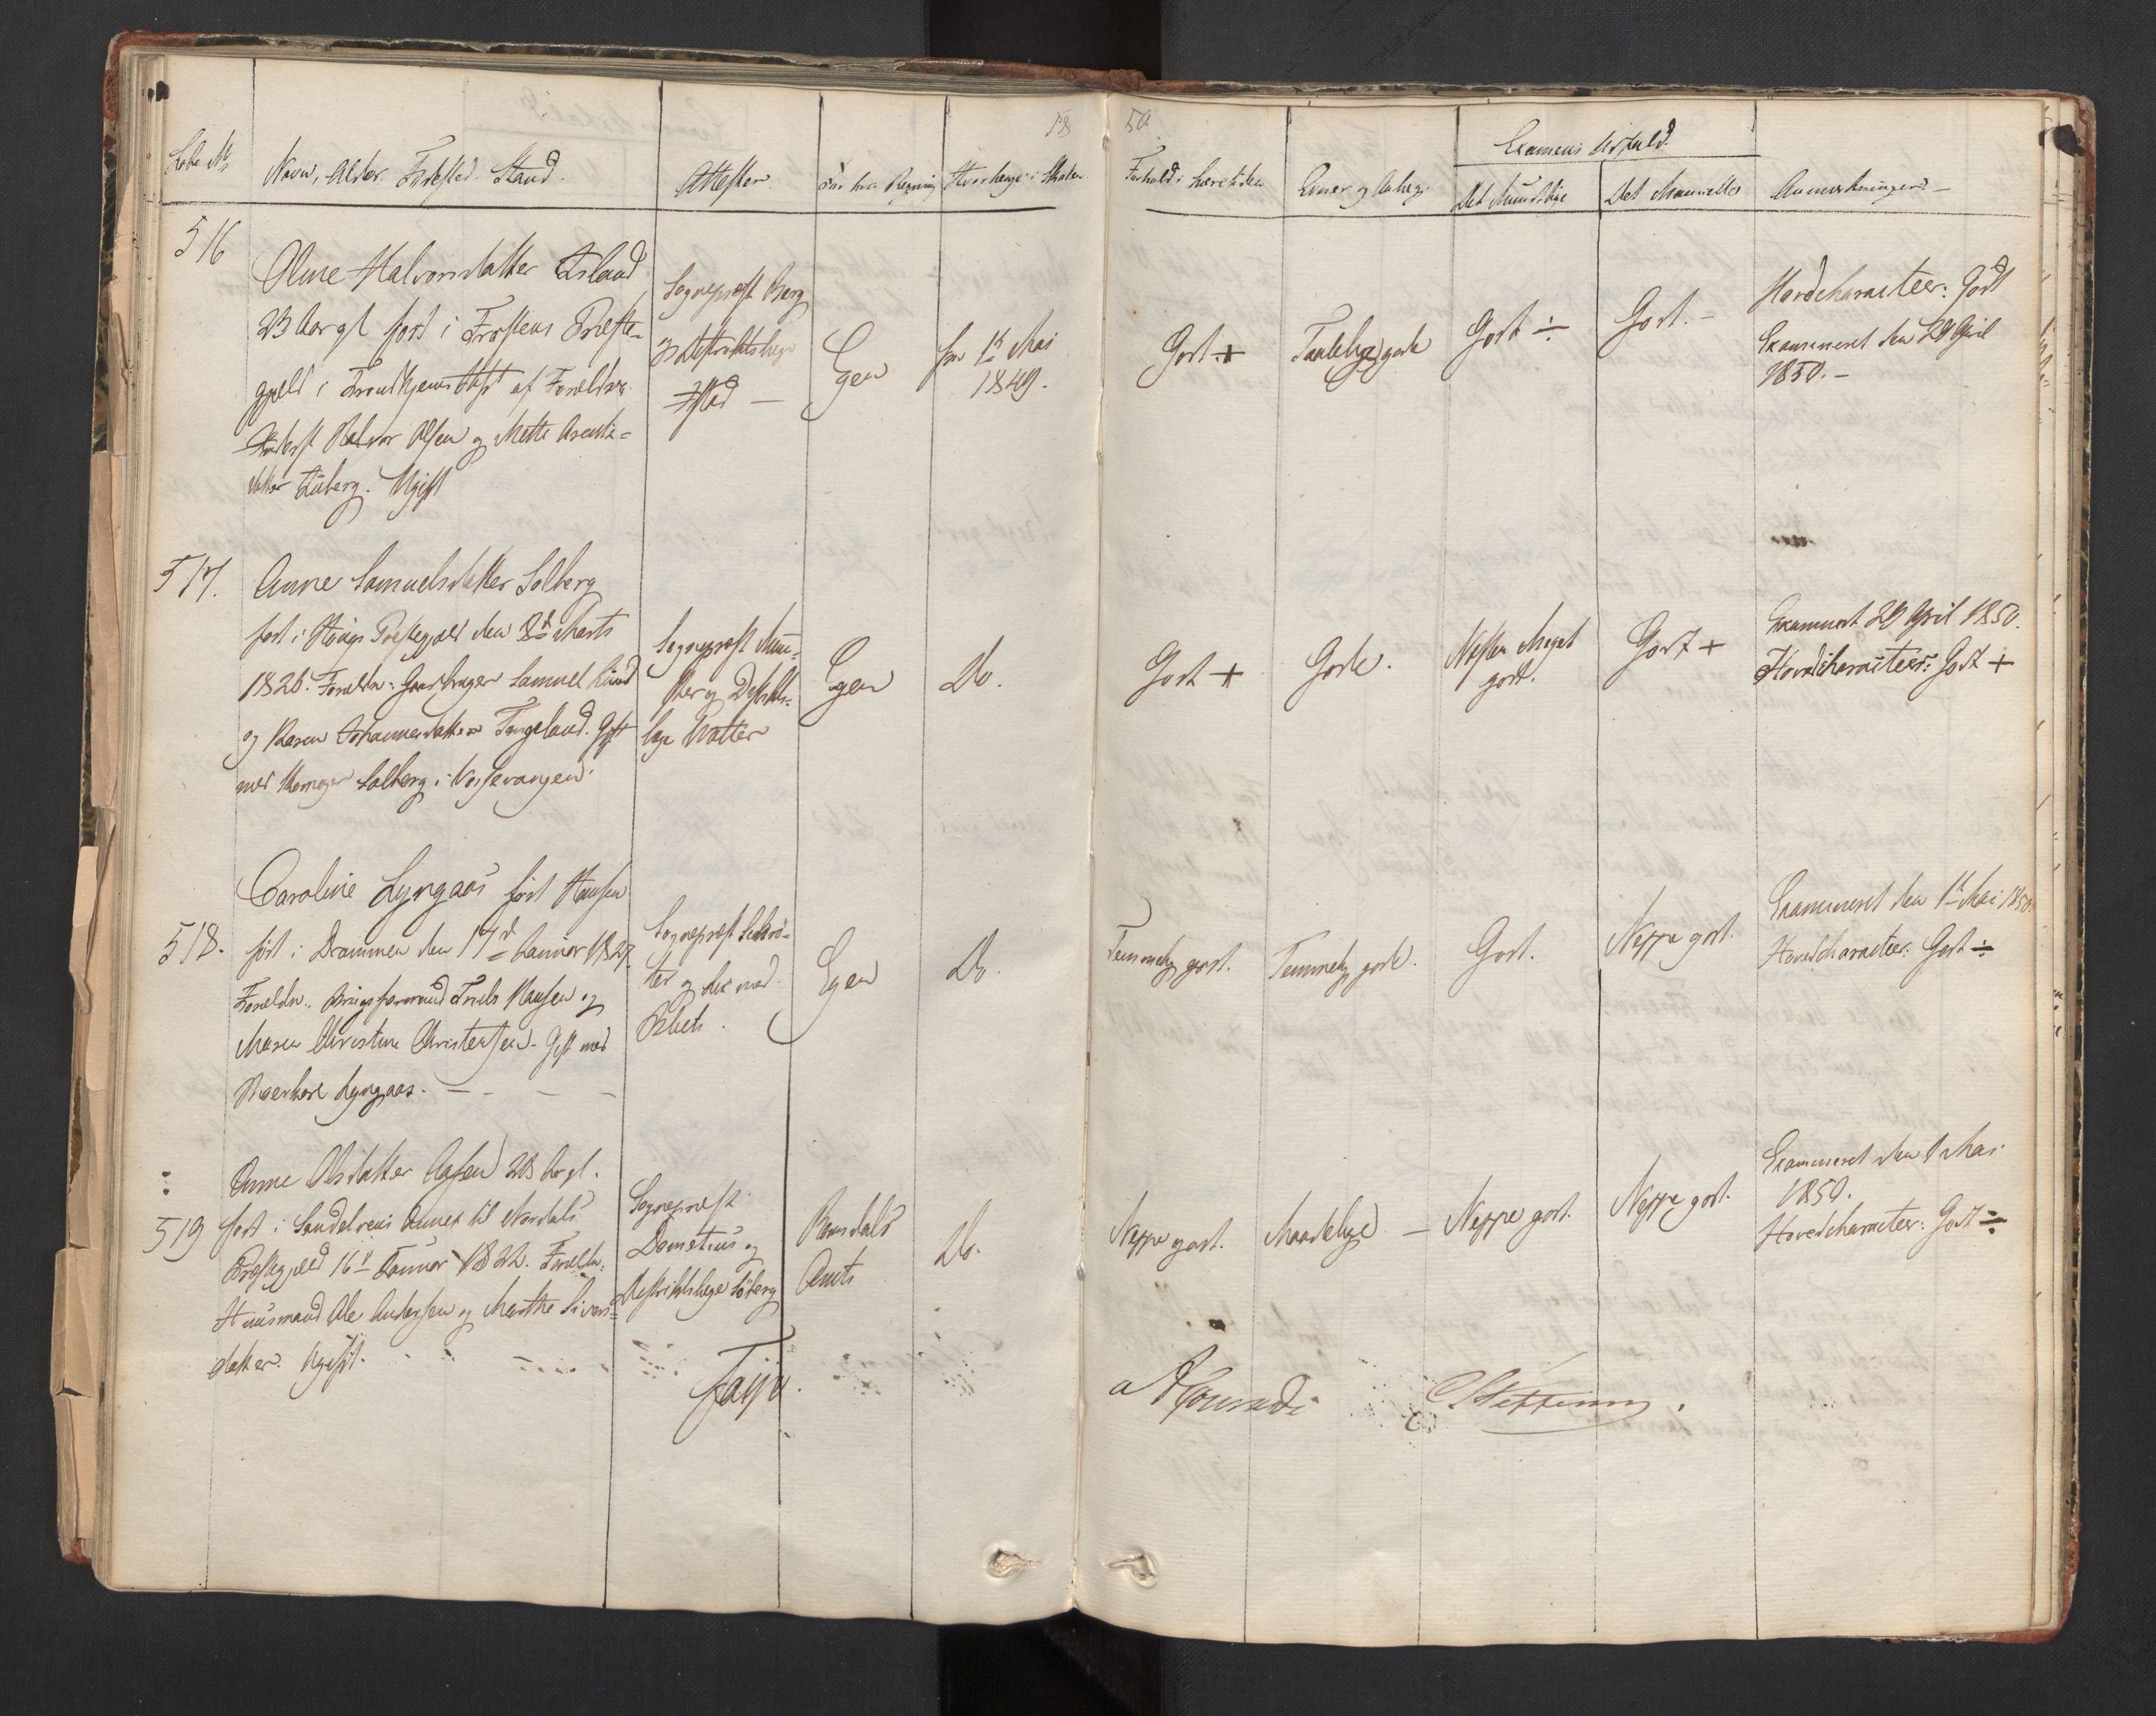 58
50
Løbe No
Navn, Alder. Fødested. Stand.
Attester
For hvis Regning
Hvorlænge i Skolen
Forhold i Læretiden
Evner og Anlæg.
Examens Udfald.
Det Mundtlige
Det Manuelle
Anmærkninger. —
516
Oline Halvorsdatter
23 Aar gl født i Frostens Præste-
gjeld i Trondhjems Stift af Forældre
Halvor Olsen og Mette Arents-
datter Ugift
Sognepræst Berg
og Distriktslæge
Egen
fra 1t Mai
1849.
Godt +
Taalelig gode
Godt ÷
Godt. –
Hovedcharacteer: Godt
Examineret den 29 April
1850. –
517.
Anne Samuelsdatter Solberg
født i Houğs Præstegjæld den 8d Marts
1826. Forældre: Gaardbruger Samuel
og Karen Johannesdatter Tangeland. Gift
med Solberg i Vossevangen.
Sognepræst Mün-
ster og Distrikts-
læge
Egen
Do.
Godt +
Gode.
Næsten Meget
godt.
Godt +
Examineret 29 April 1850.
Hovedcharacteer: Godt +
518.
Caroline Lyngaas født Hansen
født i Drammen den 17d Januar 1827.
Forældre: Troels Hansen og
Maren Christine Christensen. Gift med
Lyngaas. — - — –
Sognepræst Schrö-
ter og
Egen
Do.
Temmelig godt.
Temmelig gode.
Godt.
Neppe godt.
Examineret den 1t Mai 1850.
Hovedcharacteer: Godt ÷
519
Anne Olsdatter Aasen 28 Aar gl.
født i Annex til Nordals
Præstegjeld 16d Januar 1822. Forældre:
Huusmand Ole Andersen og Marthe Sivers-
datter. Ugift.
Sognepræst
Dometius og
Distriktslæge Söberg
Romsdals
Amts
Do.
Neppe godt.
Maadelige —
Neppe godt.
Neppe godt.
Examineret den 1 Mai
1850.
Hovedcharacteer: Godt ÷
Faye.
AConradi